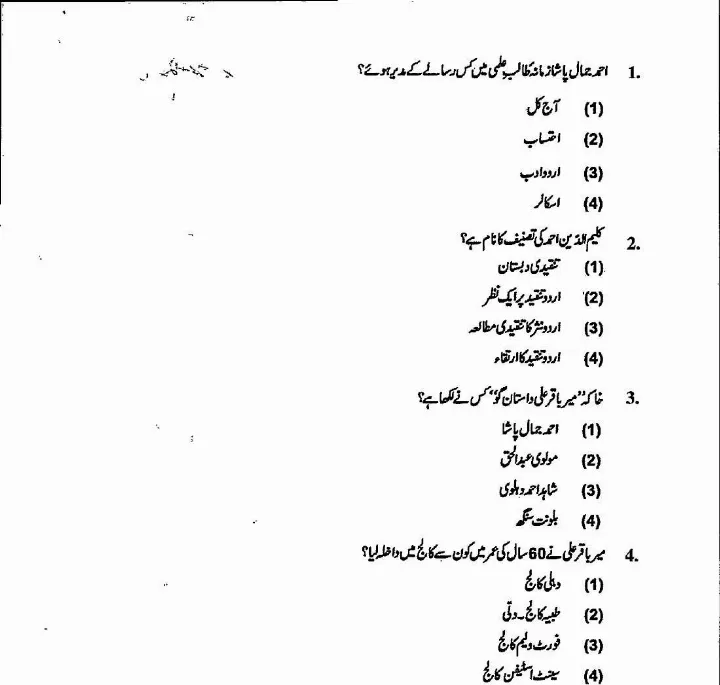 1. احمد جمال پاشا زمانۂ طالب علمی میں کس رسالے کے مدیر ہوئے؟
(1) آج کل
(2) احتساب
(3) اردو ادب
(4) اسکالر
2. کلیم الدّین احمد کی تصنیف کا نام ہے؟
(1) تنقیدی دبستان
(2) اردو تنقید پر ایک نظر
(3) اردو نثر کا تنقیدی مطالعہ
(4) اردو تنقید کا ارتقاء
3. خاکہ ”میر باقر علی داستان گو“ کس نے لکھا ہے؟
(1) احمد جمال پاشا
(2) مولوی عبدالحق
(3) شاہد احمد دہلوی
(4) بلونت سنگھ
4. میر باقر علی نے 60 سال کی عمر میں کون سے کالج میں داخلہ لیا؟
(1) دہلی کالج
(2) طبیہ کالج ۔ دلّی
(3) فورٹ ولیم کالج
(4) سینٹ اسٹیفن کالج